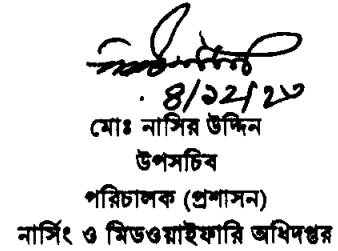 ৪/১২/২৩
মোঃ নাসির উদ্দিন
উপসচিব
পরিচালক (প্রশাসন)
নার্সিং ও মিডওয়াইফারি অধিদপ্তর